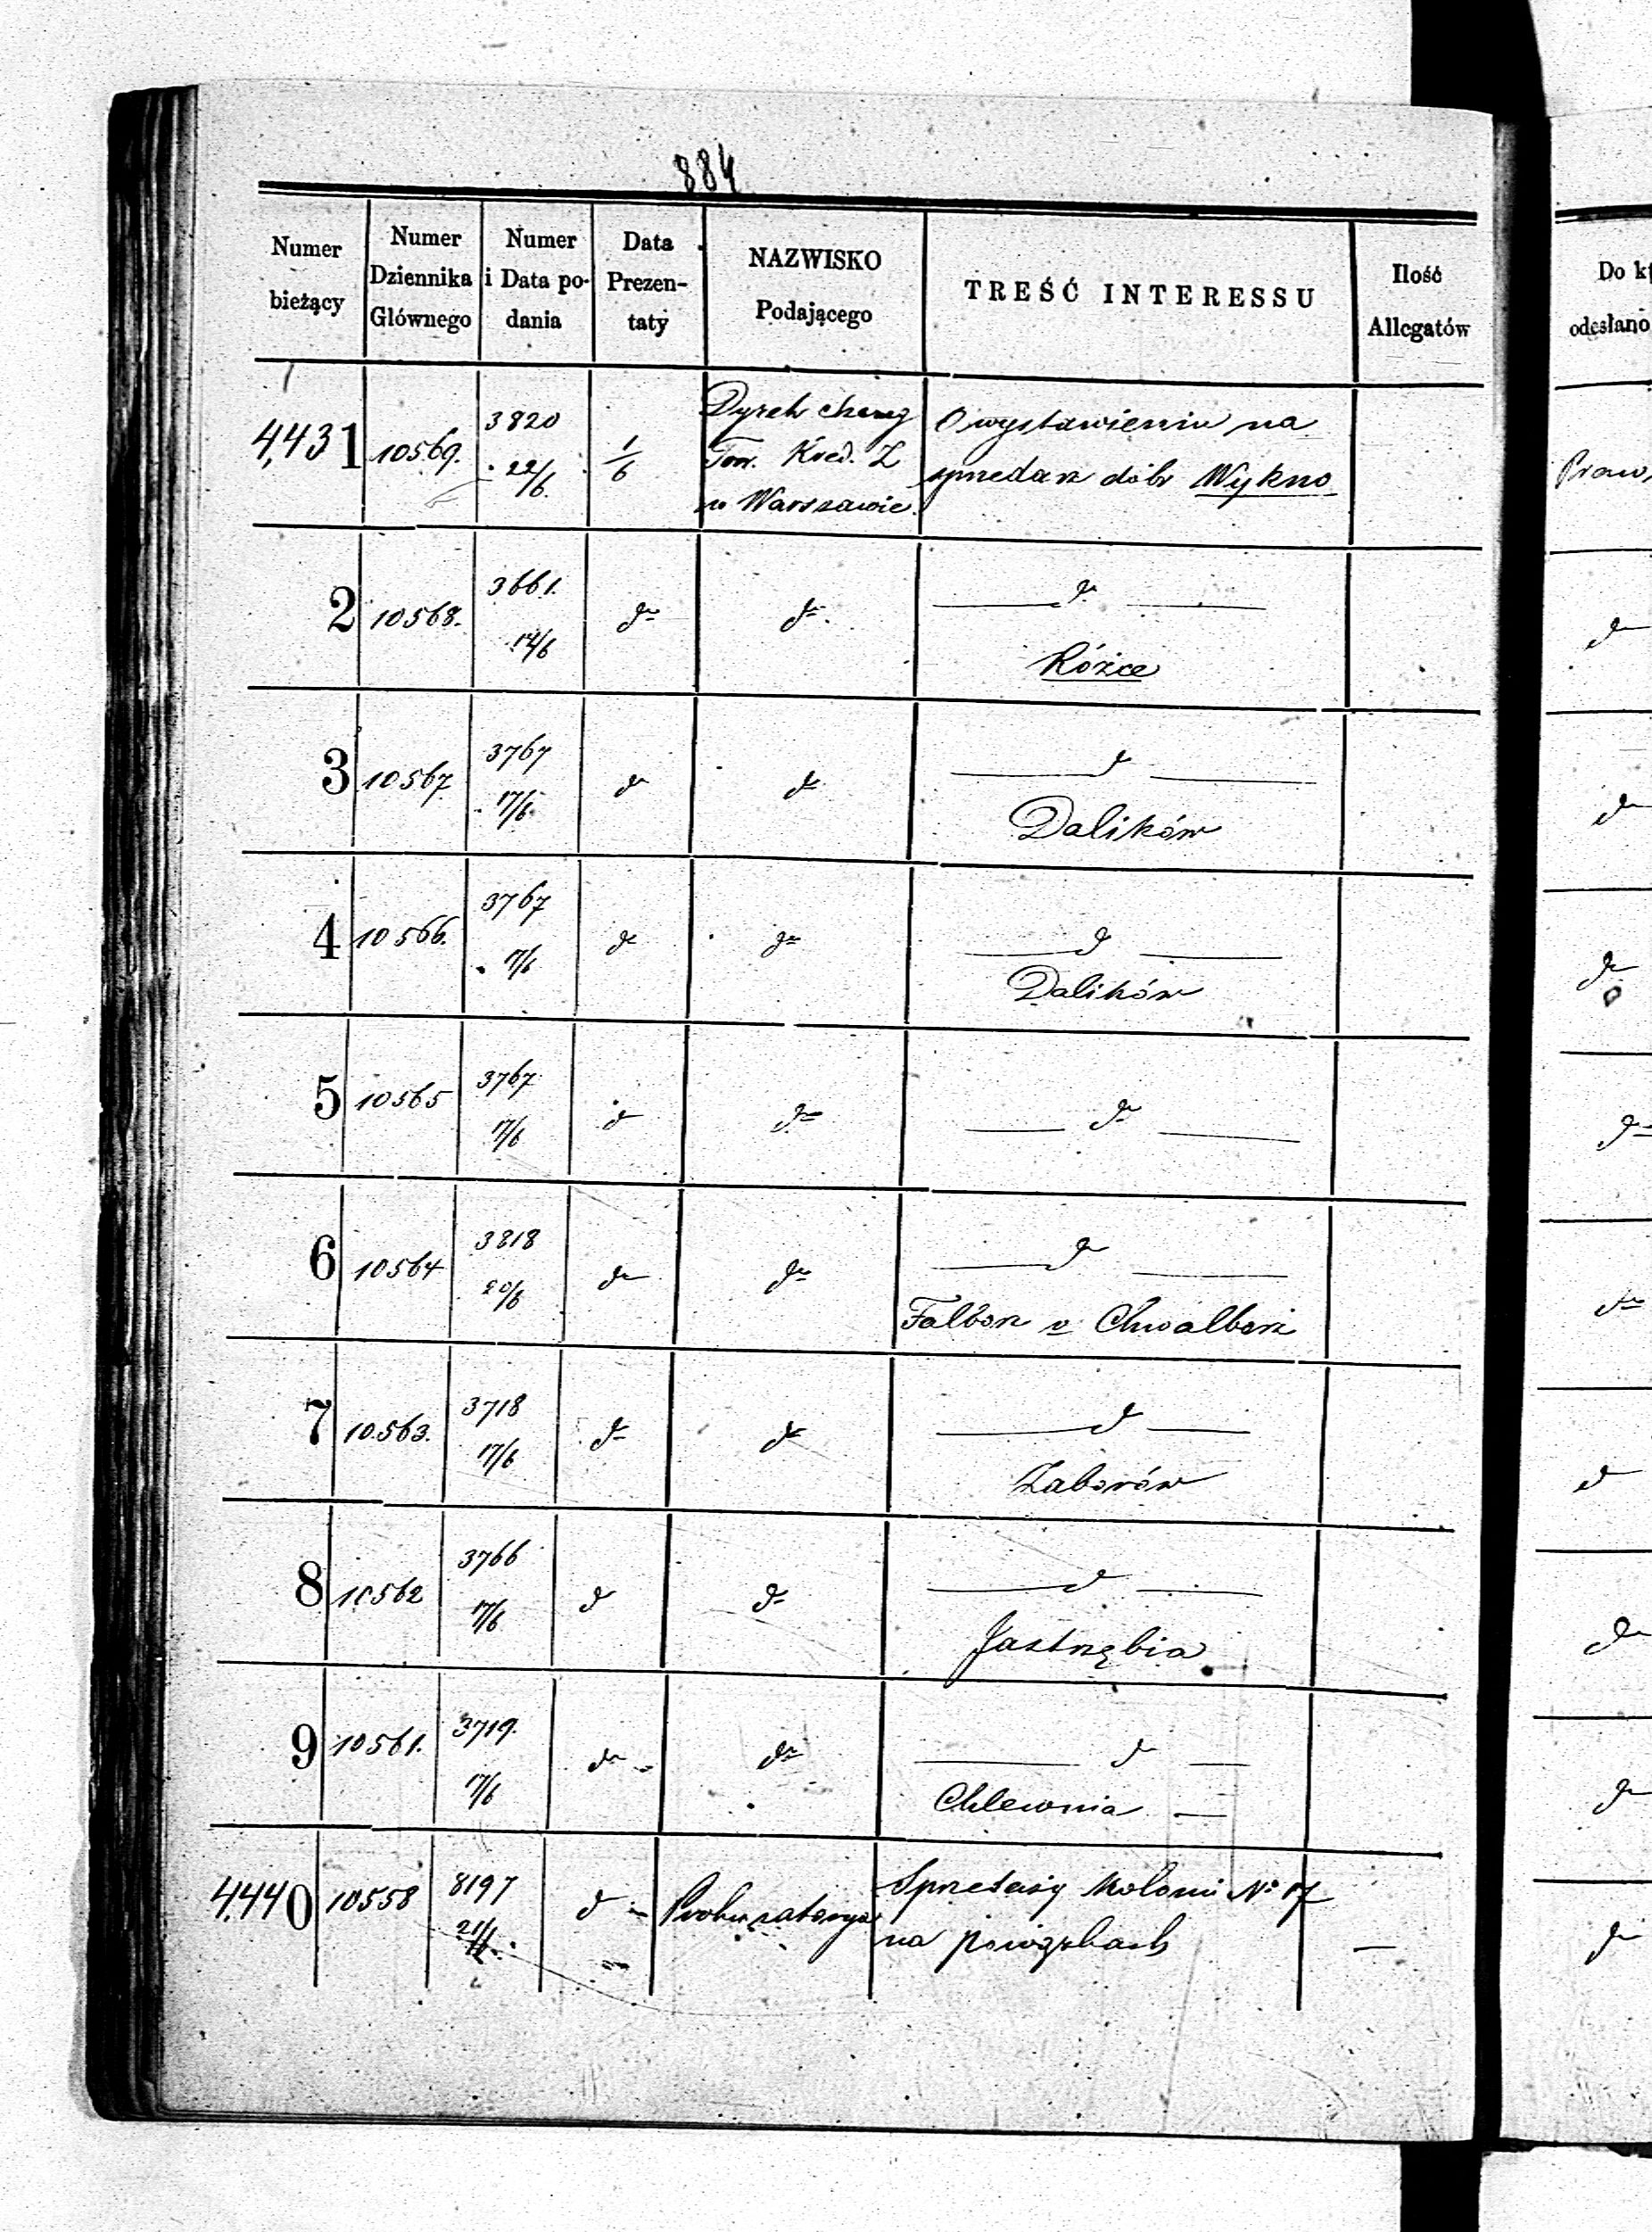 884
Numer bieżący
Numer Dziennika Głównego
Numer i Data podania
Data Prezentaty
NAZWISKO Podającego
TREŚĆ INTERESSU
Ilość Allegatów
Do
odesłano
4,431 10569. 3820 22/6. 1/6
Tow. Kred. Z
w Warszawie
O wystawieniu na
sprzedarz dóbr Wykno
2 10568. 3661. 14/6 do do. do
Różce
3 10567 3767 17/6 do do do
Dalików
4 10566. 3767 17/6 do do do
Dalików
5 10565 3767 17/6 do do do
6 10564 3818 20/6 do do do
Falborz v Chwalborz
7 10563. 3718 17/6 do do do
Zaborów
8 10562 3766 17/6 do do do
Jastrzębia
9 10561. 3719. 17/6 do do do
Chlewnia
4,440 10558 8197 do Prokuratorya
Sprzedaży Kolonii No 17
na powązkach
do
do
do
do
do
do
do
do
do